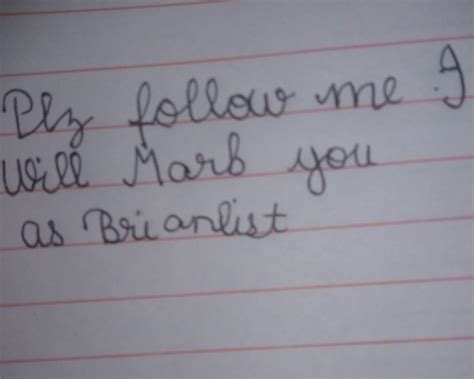 Plz follow me. I
will Marb you
as Brianlist